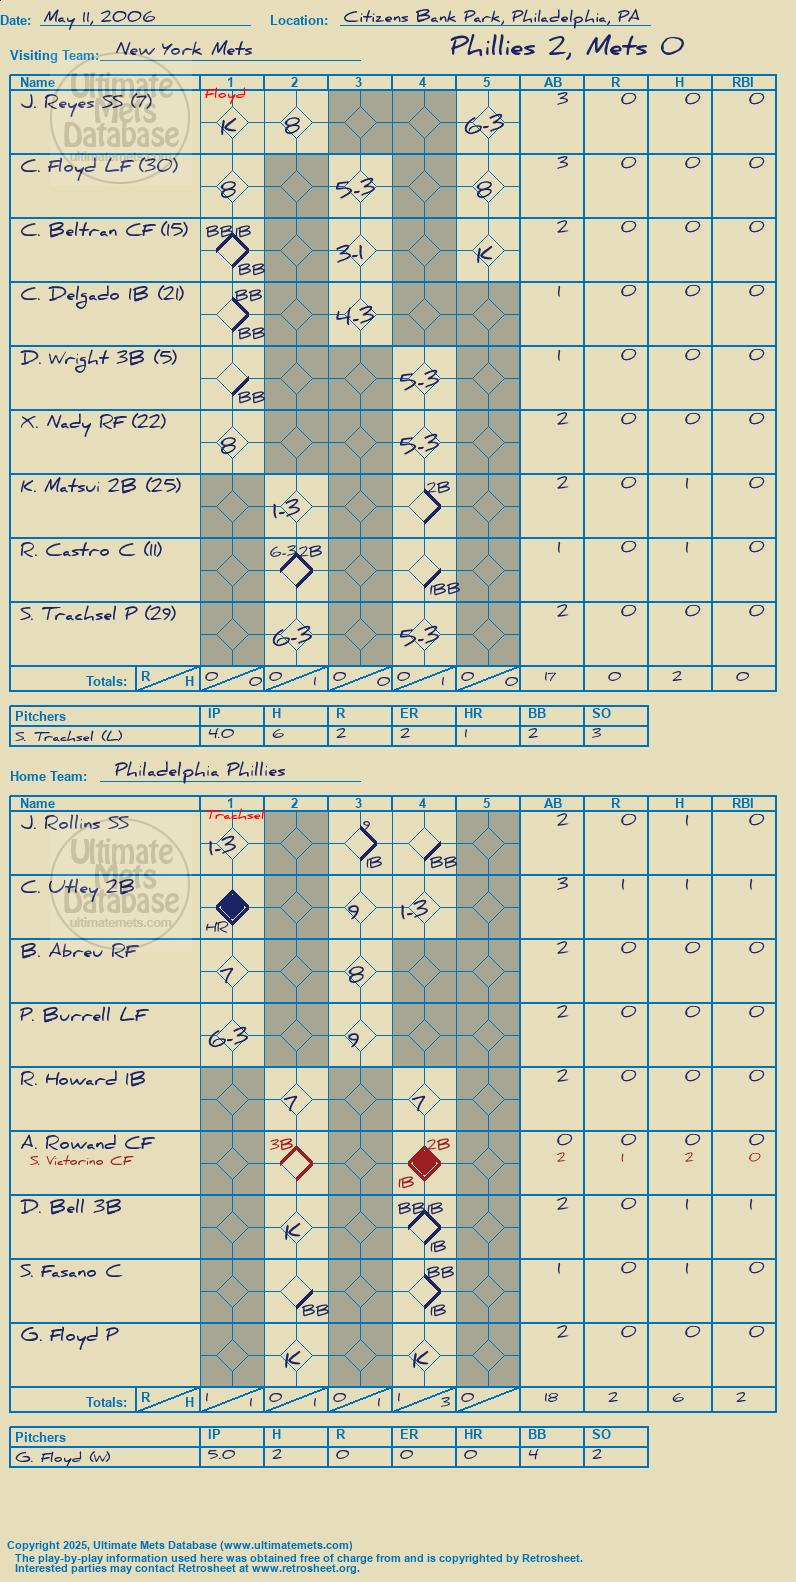 Date: May 11, 2006 Location: Citizens Bank Park, Philadelphia, PA
Visiting Team: New York Mets Phillies 2, Mets 0
Ultimate Mets Database
ultimatemets.com
Name 1 2 3 4 5 AB R H RBI
Floyd
J. Reyes SS (7) K 8 6-3 3 0 0 0
C. Floyd LF (30) 8 5-3 8 3 0 0 0
C. Beltran CF (15) BB 1B BB 3-1 K 2 0 0 0
C. Delgado 1B (21) BB BB 4-3 1 0 0 0
D. Wright 3B (5) BB 5-3 1 0 0 0
X. Nady RF (22) 8 5-3 2 0 0 0
K. Matsui 2B (25) 1-3 2B 2 0 1 0
R. Castro C (11) 6-3 2B IBB 1 0 1 0
S. Trachsel P (29) 6-3 5-3 2 0 0 0
Totals: R H 0 0 0 1 0 0 0 1 0 0 17 0 2 0
Pitchers IP H R ER HR BB SO
S. Trachsel (L) 4.0 6 2 2 1 2 3
Home Team: Philadelphia Phillies
Name 1 2 3 4 5 AB R H RBI
Trachsel
J. Rollins SS 1-3 9 1B BB 2 0 1 0
Ultimate Mets Database
ultimatemets.com
C. Utley 2B HR 9 1-3 3 1 1 1
B. Abreu RF 7 8 2 0 0 0
P. Burrell LF 6-3 9 2 0 0 0
R. Howard 1B 7 7 2 0 0 0
A. Rowand CF 3B 2B 0 0 0 0
S. Victorino CF 1B 2 1 2 0
D. Bell 3B K BB 1B 1B 2 0 1 1
S. Fasano C BB BB 1B 1 0 1 0
G. Floyd P K K 2 0 0 0
Totals: R H 1 1 0 1 0 1 1 3 0 18 2 6 2
Pitchers IP H R ER HR BB SO
G. Floyd (W) 5.0 2 0 0 0 4 2
Copyright 2025, Ultimate Mets Database (www.ultimatemets.com)
The play-by-play information used here was obtained free of charge from and is copyrighted by Retrosheet.
Interested parties may contact Retrosheet at www.retrosheet.org.